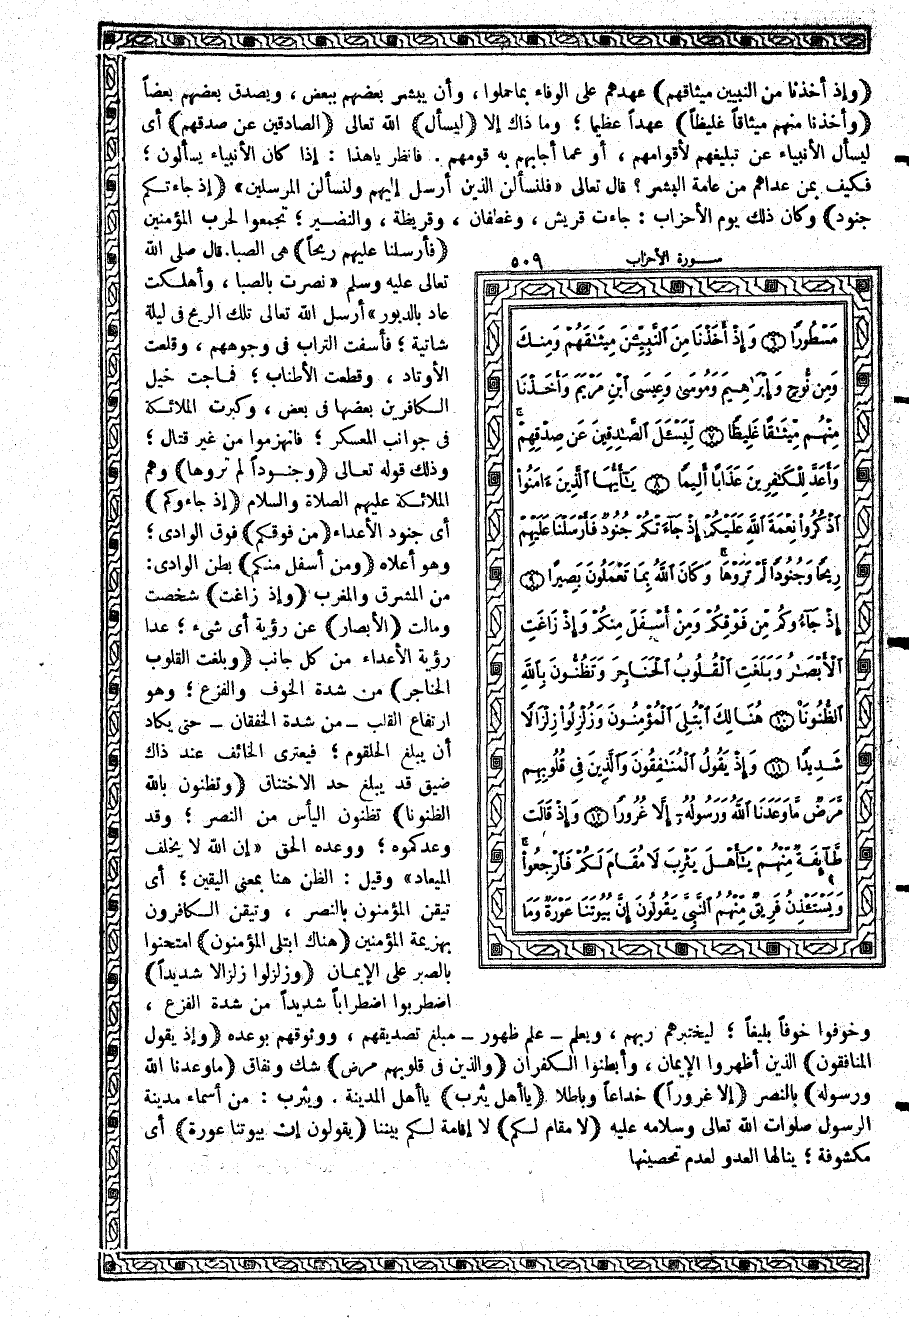 (وإذ أخذنا من النبيين ميثاقهم) عهدهم على الوفاء بما حملوا ، وأن يبشر بعضهم ببعض ، ويصدق بعضهم بعضاً
(وأخذنا منهم ميثاقاً غليظاً) عهداً عظيما ؛ وما ذاك إلا (ليسأل) الله تعالى (الصادقين عن صدقهم) أى
ليسأل الأنبياء عن تبليغهم لأقوامهم ، أو عما أجابهم به قومهم . فانظر ياهذا : إذا كان الأنبياء يسألون ؛
فكيف بمن عداهم من عامة البشر ؟ قال تعالى «فلنسألن الذين أرسل إليهم ولنسألن المرسلين» (إذ جاءتكم
جنود) وكان ذلك يوم الأحزاب : جاءت قريش ، وغطفان ، وقريظة ، والنضير ؛ تجمعوا لحرب المؤمنين
(فأرسلنا عليهم ريحاً) هى الصبا. قال صلى الله
تعالى عليه وسلم «نصرت بالصبا ، وأهلكت
عاد بالدبور» أرسل الله تعالى تلك الريح فى ليلة
شاتية ؛ فأسفت التراب فى وجوههم ، وقلعت
الأوتاد ، وقطعت الأطناب ؛ فماجت خيل
الكافرين بعضها فى بعض ، وكبرت الملائكة
فى جوانب المعسكر ؛ فانهزموا من غير قتال ؛
وذلك قوله تعالى (وجنوداً لم تروها) وهم
الملائكة عليهم الصلاة والسلام (إذ جاءوكم)
أى جنود الأعداء (من فوقكم) فوق الوادى ؛
وهو أعلاه (ومن أسفل منكم) بطن الوادى:
من المشرق والمغرب (وإذ زاغت) شخصت
ومالت (الأبصار) عن رؤية أى شىء ؛ عدا
رؤية الأعداء من كل جانب (وبلغت القلوب
الحناجر) من شدة الخوف والفزع ؛ وهو
ارتفاع القلب ـ من شدة الخفقان ـ حتى يكاد
أن يبلغ الحلقوم ؛ فيعترى الخائف عند ذاك
ضيق قد يبلغ حد الاختناق (وتظنون بالله
الظنونا) تظنون اليأس من النصر ؛ وقد
وعدكموه ؛ ووعده الحق «إن الله لا يخلف
الميعاد» وقيل : الظن هنا بمعنى اليقين ؛ أى
تيقن المؤمنون بالنصر ، وتيقن الكافرون
بهزيمة المؤمنين (هنالك ابتلى المؤمنون) امتحنوا
بالصبر على الإيمان (وزلزلوا زلزالا شديداً)
اضطربوا اضطراباً شديداً من شدة الفزع ،
سورة الأحزاب ٥٠٩
مَسْطُورًا ٦ وَإِذْ أَخَذْنَا مِنَ ٱلنَّبِيِّـۧنَ مِيثَٰقَهُمْ وَمِنكَ
وَمِن نُّوحٍ وَإِبْرَٰهِيمَ وَمُوسَىٰ وَعِيسَى ٱبْنِ مَرْيَمَ وَأَخَذْنَا
مِنْهُم مِّيثَٰقًا غَلِيظًا ٧ لِّيَسْـَٔلَ ٱلصَّٰدِقِينَ عَن صِدْقِهِمْ ۚ
وَأَعَدَّ لِلْكَٰفِرِينَ عَذَابًا أَلِيمًا ٨ يَٰٓأَيُّهَا ٱلَّذِينَ ءَامَنُوا۟
ٱذْكُرُوا۟ نِعْمَةَ ٱللَّهِ عَلَيْكُمْ إِذْ جَآءَتْكُمْ جُنُودٌ فَأَرْسَلْنَا عَلَيْهِمْ
رِيحًا وَجُنُودًا لَّمْ تَرَوْهَا ۚ وَكَانَ ٱللَّهُ بِمَا تَعْمَلُونَ بَصِيرًا ٩
إِذْ جَآءُوكُم مِّن فَوْقِكُمْ وَمِنْ أَسْفَلَ مِنكُمْ وَإِذْ زَاغَتِ
ٱلْأَبْصَٰرُ وَبَلَغَتِ ٱلْقُلُوبُ ٱلْحَنَاجِرَ وَتَظُنُّونَ بِٱللَّهِ
ٱلظُّنُونَا۠ ١٠ هُنَالِكَ ٱبْتُلِىَ ٱلْمُؤْمِنُونَ وَزُلْزِلُوا۟ زِلْزَالًا
شَدِيدًا ١١ وَإِذْ يَقُولُ ٱلْمُنَٰفِقُونَ وَٱلَّذِينَ فِى قُلُوبِهِم
مَّرَضٌ مَّا وَعَدَنَا ٱللَّهُ وَرَسُولُهُۥٓ إِلَّا غُرُورًا ١٢ وَإِذْ قَالَت
طَّآئِفَةٌ مِّنْهُمْ يَٰٓأَهْلَ يَثْرِبَ لَا مُقَامَ لَكُمْ فَٱرْجِعُوا۟ ۚ
وَيَسْتَـْٔذِنُ فَرِيقٌ مِّنْهُمُ ٱلنَّبِىَّ يَقُولُونَ إِنَّ بُيُوتَنَا عَوْرَةٌ وَمَا
وخوفوا خوفاً بليغاً ؛ ليختبرهم ربهم ، ويعلم ـ علم ظهور ـ مبلغ تصديقهم ، ووثوقهم بوعده (وإذ يقول
المنافقون) الذين أظهروا الإيمان ، وأبطنوا الكفران (والذين فى قلوبهم مرض) شك ونفاق (ماوعدنا الله
ورسوله) بالنصر (إلا غروراً) خداعاً وباطلا (ياأهل يثرب) ياأهل المدينة . ويثرب : من أسماء مدينة
الرسول صلوات الله تعالى وسلامه عليه (لا مقام لكم) لا إقامة لكم بيننا (يقولون إن بيوتنا عورة) أى
مكشوفة ؛ ينالها العدو لعدم تحصينها